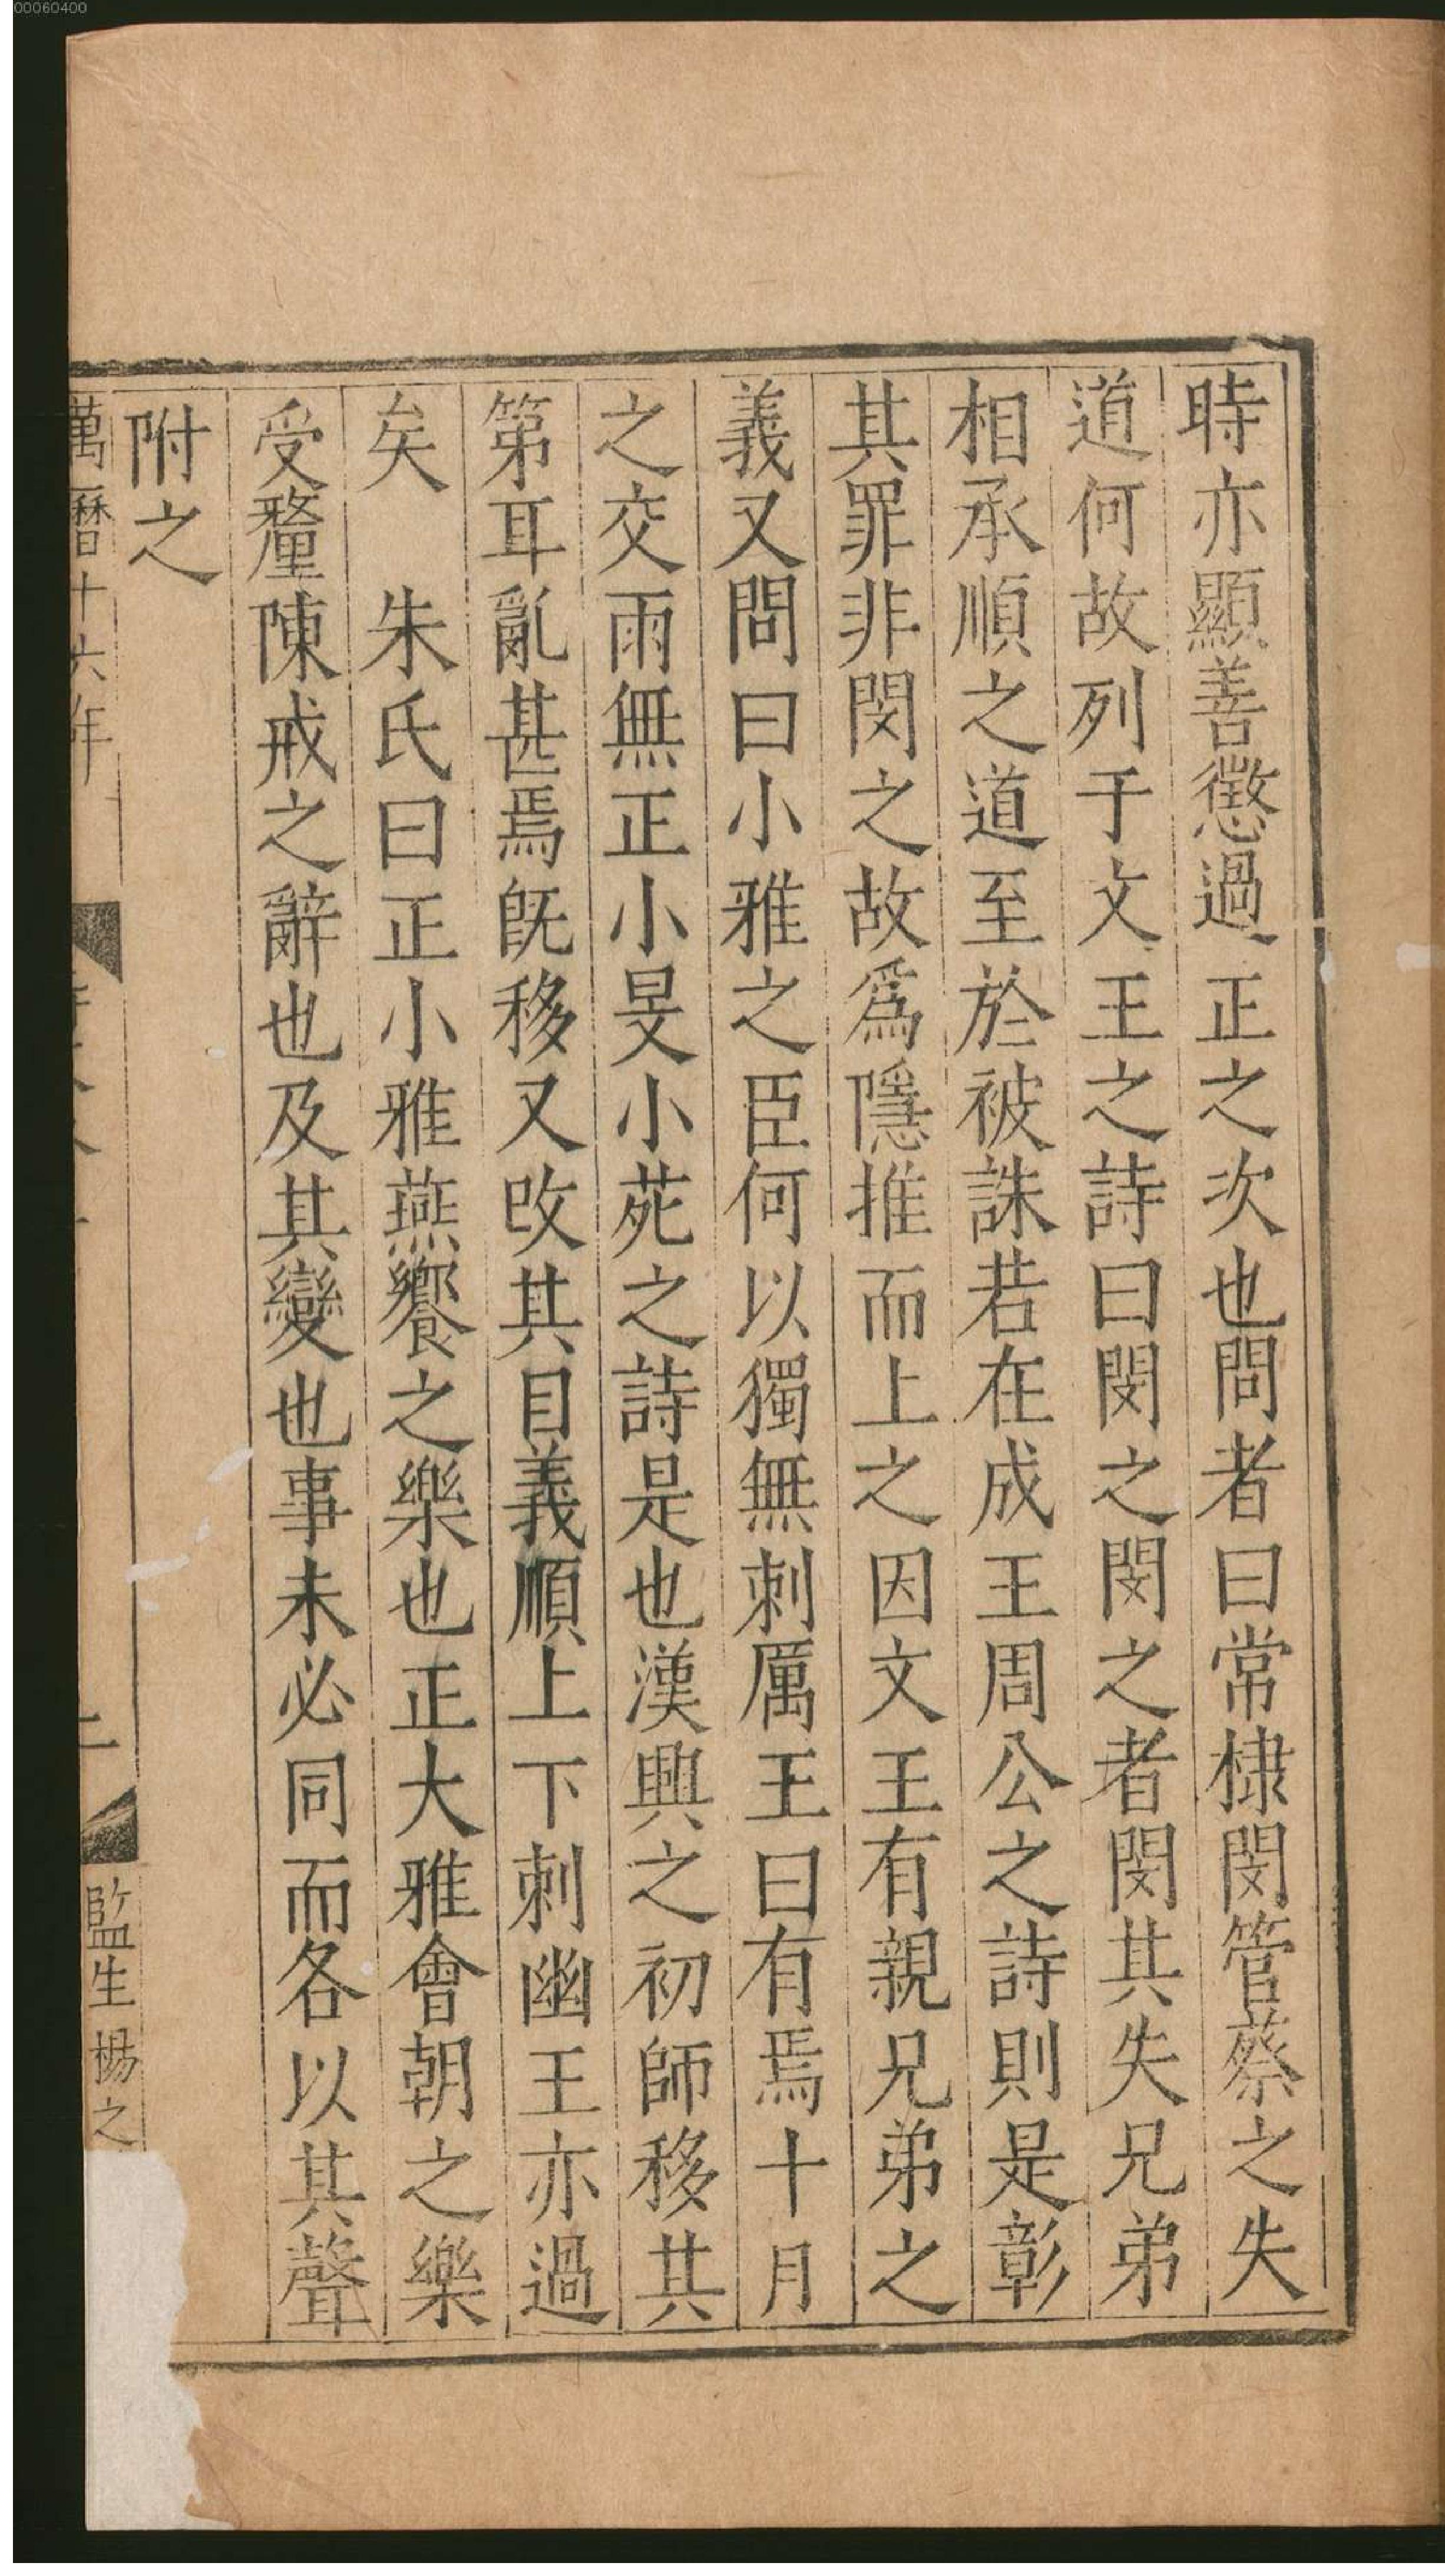 00060400
時亦顯善懲過正之次也問者曰常棣閔管蔡之失
道何故列于文王之詩曰閔之閔之者閔其失兄弟
相承順之道至於被誅若在成王周公之詩則是彰
其罪非閔之故爲隱推而上之因文王有親兄弟之
義又問曰小雅之臣何以獨無刺厲王曰有焉十月
之交雨無正小旻小菀之詩是也漢興之初師移其
第耳亂甚焉旣移又改其目義順上下刺幽王亦過
矣　朱氏曰正小雅燕饗之樂也正大雅會朝之樂
受釐陳戒之辭也及其變也事未必同而各以其聲
附之
萬曆十六年
二
監生楊之